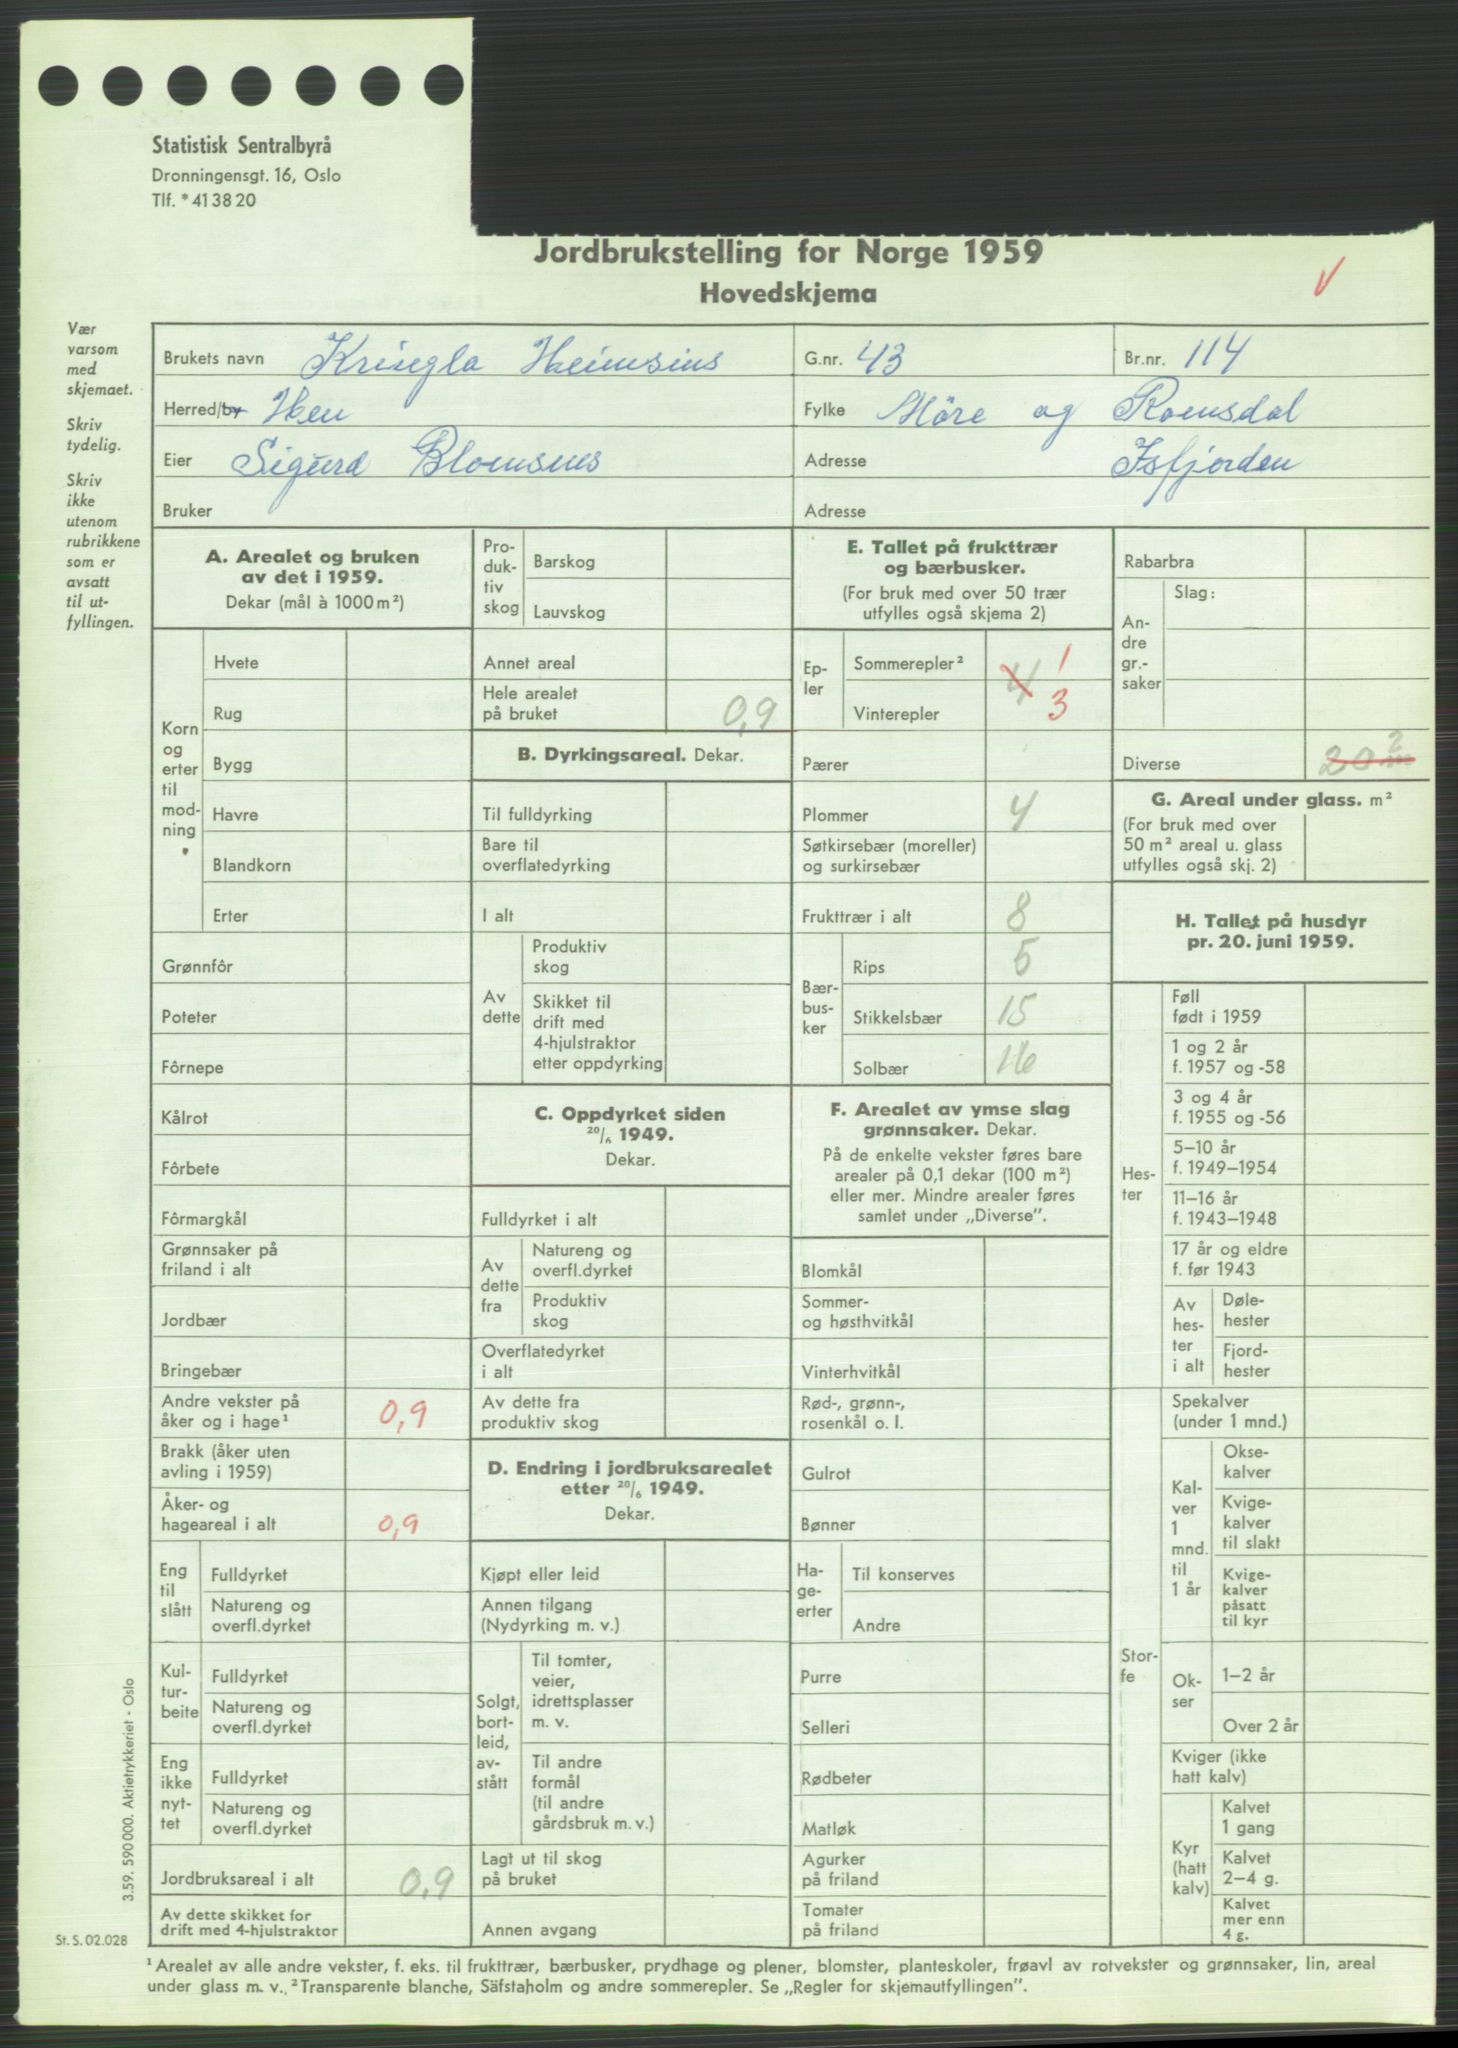 Statistisk Sentralbyrå
Dronningensgt. 16, Oslo
Tlf. *41 38 20
Jordbrukstelling for Norge 1959
Hovedskjema
V
Vær
varsom
med
skjemaet.
Skriv
tydelig.
Skriv
ikke
utenom
rubrikkene
som er
avsatt
til ut-
fyllingen.
Brukets navn Kringla Heimsins G.nr. 43 Br.nr. 114
Herred/by Hen Fylke Möre og Romsdal
Eier Sigurd Blomsnes Adresse Isfjorden
Bruker Adresse
A. Arealet og bruken
av det i 1959.
Dekar (mål à 1000 m²)
Korn
og
erter
til
mod-
ning
Hvete
Rug
Bygg
Havre
Blandkorn
Erter
Grønnfôr
Poteter
Fôrnepe
Kålrot
Fôrbete
Fôrmargkål
Grønnsaker på
friland i alt
Jordbær
Bringebær
Andre vekster på
åker og i hage¹ 0,9
Brakk (åker uten
avling i 1959)
Åker- og
hageareal i alt 0,9
Eng
til
slått
Fulldyrket
Natureng og
overfl.dyrket
Kul-
tur-
beite
Fulldyrket
Natureng og
overfl.dyrket
Eng
ikke
nyt-
tet
Fulldyrket
Natureng og
overfl.dyrket
Jordbruksareal i alt 0,9
Av dette skikket for
drift med 4-hjulstraktor
Pro-
duk-
tiv
skog
Barskog
Lauvskog
Annet areal
Hele arealet
på bruket 0,9
B. Dyrkingsareal. Dekar.
Til fulldyrking
Bare til
overflatedyrking
I alt
Av
dette
Produktiv
skog
Skikket til
drift med
4-hjulstraktor
etter oppdyrking
C. Oppdyrket siden
20/6 1949.
Dekar.
Fulldyrket i alt
Av
dette
fra
Natureng og
overfl.dyrket
Produktiv
skog
Overflatedyrket
i alt
Av dette fra
produktiv skog
D. Endring i jordbruksarealet
etter 20/6 1949.
Dekar.
Kjøpt eller leid
Annen tilgang
(Nydyrking m. v.)
Solgt,
bort-
leid,
av-
stått
Til tomter,
veier,
idrettsplasser
m. v.
Til andre
formål
(til andre
gårdsbruk m. v.)
Lagt ut til skog
på bruket
Annen avgang
E. Tallet på frukttrær
og bærbusker.
(For bruk med over 50 trær
utfylles også skjema 2)
Ep-
ler
Sommerepler² 4 1
Vinterepler 3
Pærer
Plommer 4
Søtkirsebær (moreller)
og surkirsebær
Frukttrær i alt 8
Bær-
bus-
ker
Rips 5
Stikkelsbær 15
Solbær 16
F. Arealet av ymse slag
grønnsaker. Dekar.
På de enkelte vekster føres bare
arealer på 0,1 dekar (100 m²)
eller mer. Mindre arealer føres
samlet under „Diverse”.
Blomkål
Sommer-
og høsthvitkål
Vinterhvitkål
Rød-, grønn-,
rosenkål o. l.
Gulrot
Bønner
Ha-
ge-
erter
Til konserves
Andre
Purre
Selleri
Rødbeter
Matløk
Agurker
på friland
Tomater
på friland
Rabarbra
An-
dre
gr.-
saker
Slag:
Diverse 20 m²
G. Areal under glass. m²
(For bruk med over
50 m² areal u. glass
utfylles også skj. 2)
H. Tallet på husdyr
pr. 20. juni 1959.
Hes-
ter
Føll
født i 1959
1 og 2 år
f. 1957 og -58
3 og 4 år
f. 1955 og -56
5–10 år
f. 1949–1954
11–16 år
f. 1943–1948
17 år og eldre
f. før 1943
Av
hes-
ter
i alt
Døle-
hester
Fjord-
hester
Stor-
fe
Spekalver
(under 1 mnd.)
Kal-
ver
1
mnd.
til
1 år
Okse-
kalver
Kvige-
kalver
til slakt
Kvige-
kalver
påsatt
til kyr
Ok-
ser
1–2 år
Over 2 år
Kviger (ikke
hatt kalv)
Kyr
(hatt
kalv)
Kalvet
1 gang
Kalvet
2–4 g.
Kalvet
mer enn
4 g.
3.59. 590 000. Aktietrykkeriet - Oslo
St. S. 02.028
¹ Arealet av alle andre vekster, f. eks. til frukttrær, bærbusker, prydhage og plener, blomster, planteskoler, frøavl av rotvekster og grønnsaker, lin, areal
under glass m. v. ² Transparente blanche, Säfstaholm og andre sommerepler. Se „Regler for skjemautfyllingen”.